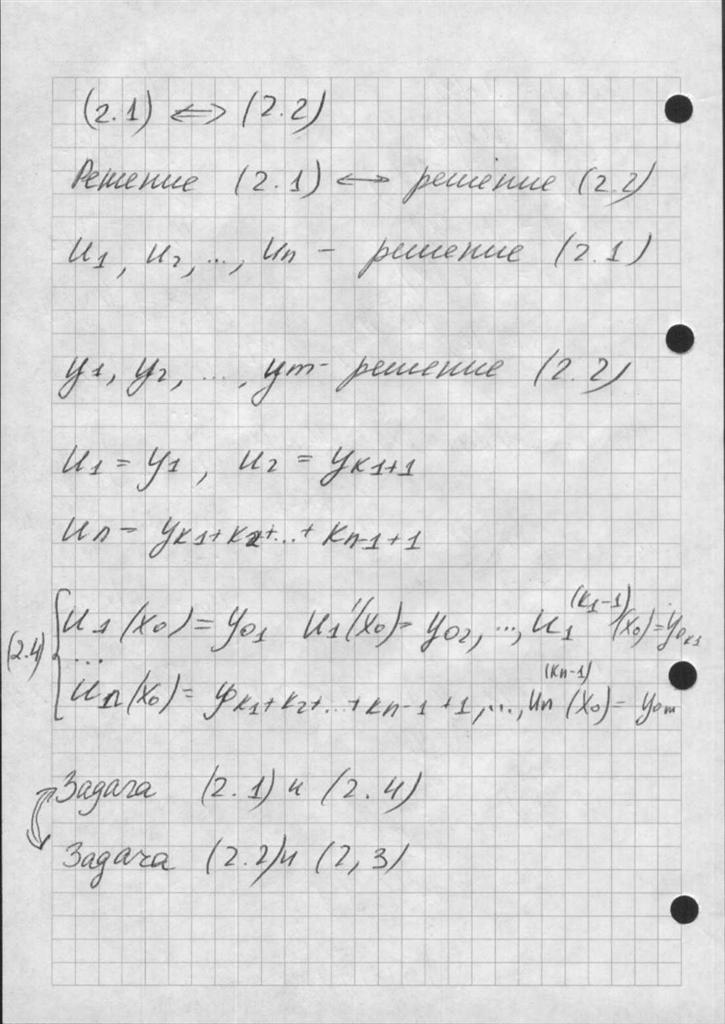 (2.1) ⟺ (2.2)
Решение (2.1) ⟷ решение (2.2)
u₁, u₂, ..., uₙ – решение (2.1)
y₁, y₂, ..., yₘ – решение (2.2)
u₁ = y₁, u₂ = y_{k₁+1}
uₙ = y_{k₁+k₂+...+kₙ₋₁+1}
(2.4) { u₁(x₀) = y₀₁ u₁'(x₀) = y₀₂, ..., u₁^{(k₁-1)}(x₀) = y_{0k₁}
...
uₙ(x₀) = y_{0k₁+k₂+...+kₙ₋₁+1}, ..., uₙ^{(kₙ-1)}(x₀) = y₀ₘ
Задача (2.1) и (2.4)
Задача (2.2) и (2,3)